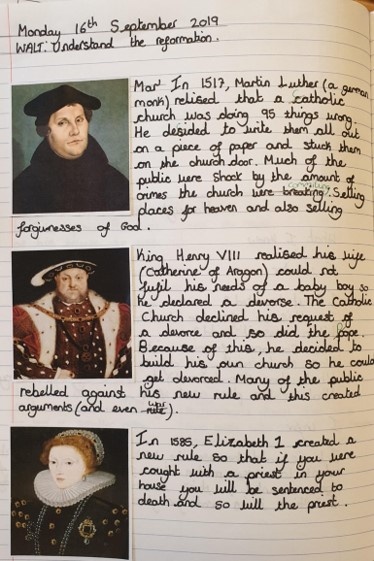 Monday 16th September 2019
WALT: Understand the reformation.
Mar' In 1517, Martin Luther (a german
monk) relised that a catholic
church was doing 95 things wrong.
He desided to write them all out
on a piece of paper and stuck them
on the church door. Much of the
public were shock by the amount of
crimes the church were breaking. Selling
places for heaven and also selling
forgivnesses of God.
King Henry VIII realised his wife
(Catherine of Aragon) could not
fufil his needs of a baby boy so
he declared a devorse. The Catholic
Church declined his request of
a devorce and so did the Pope.
Because of this, he decided to
build his own church so he could
get devorced. Many of the public
rebelled against his new rule and this created
arguments (and even war).
In 1585, Elizabeth 1 created a
new rule so that if you were
cought with a priest in your
house you will be sentenced to
death and so will the priest.